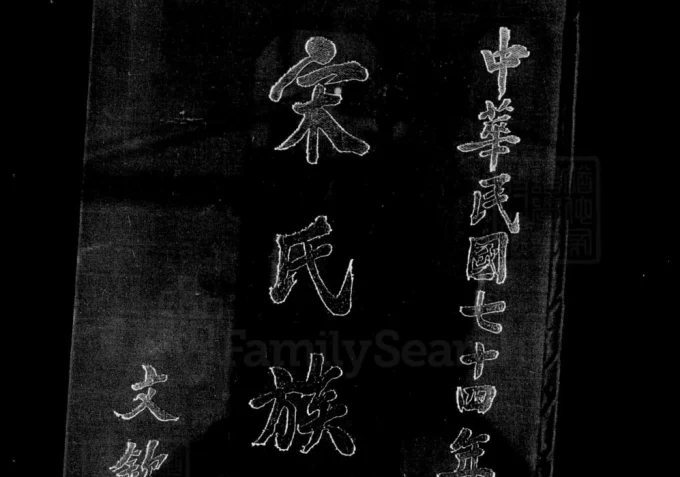 中華民國七十四年
宋氏族
文欽
FamilySear